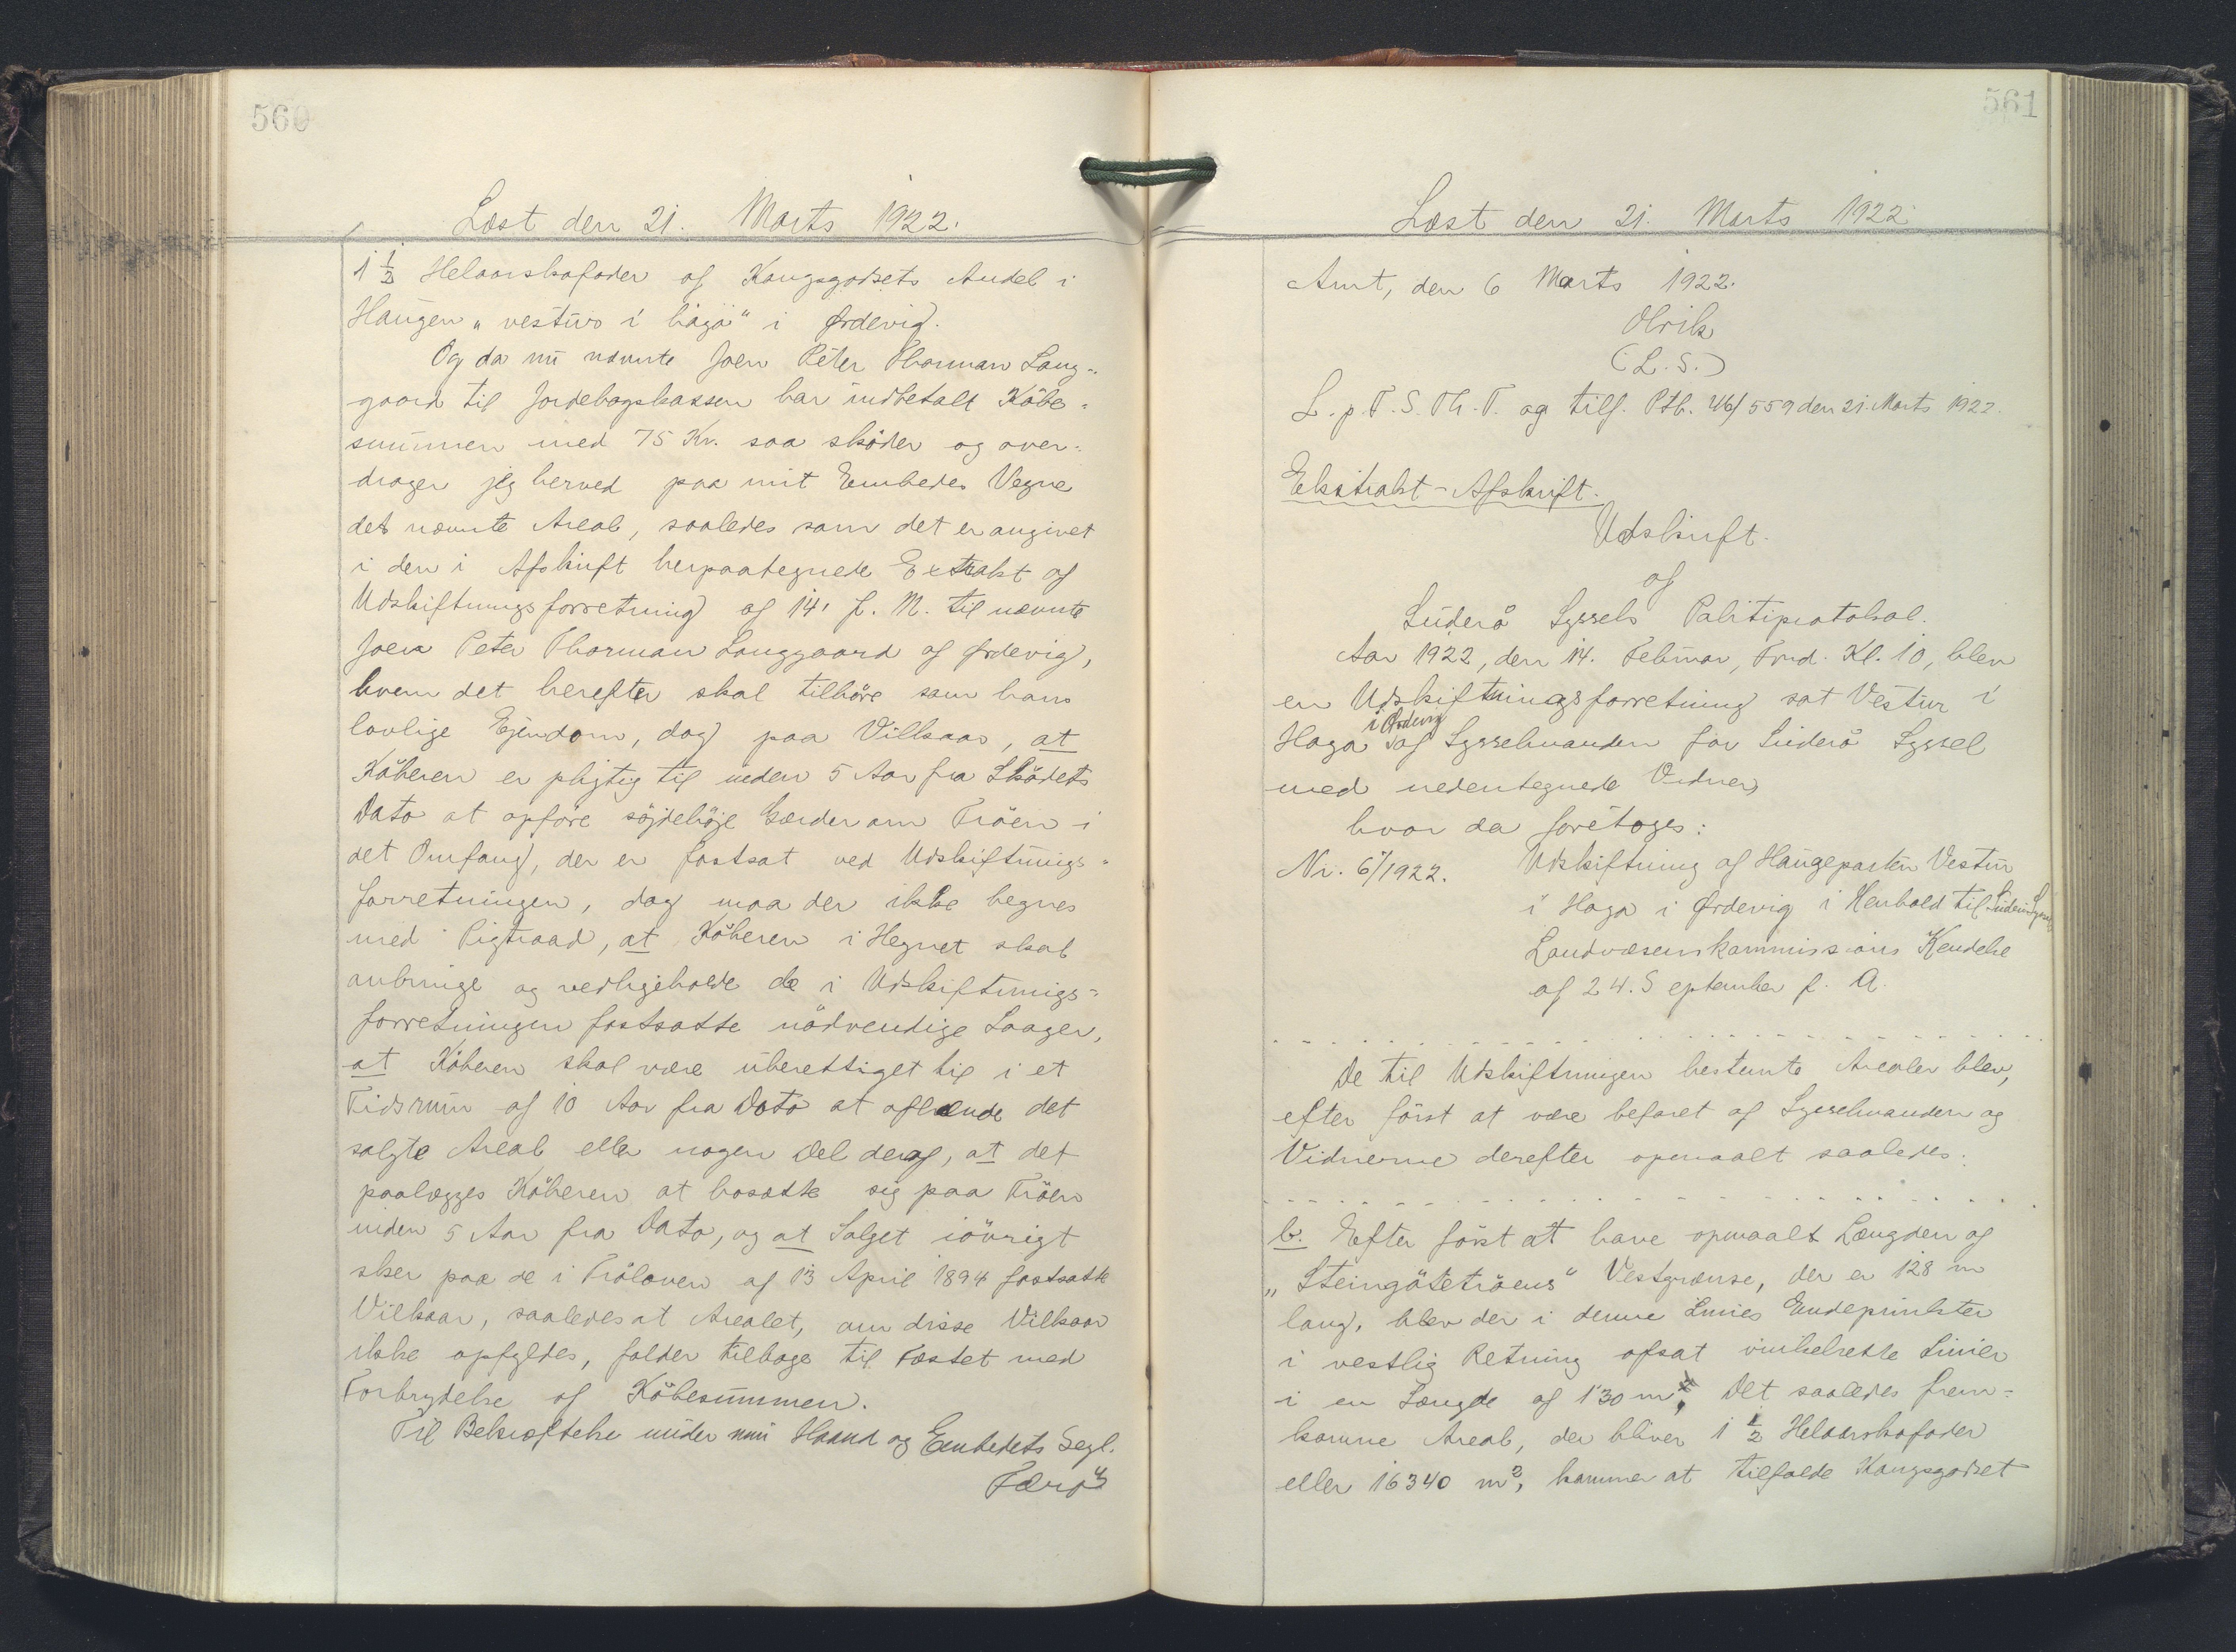 560
Læst den 21. Marts 1922.
1 1/2 Helaarskofoder af Kongsgodsets Andel i
Haugen „vestur i haga" i Ørdevig.
Og da nu nævnte Joen Peter Thorman Lang-
gaard til Jordebogskassen har indbetalt Købe-
summen med 75 Kr. saa skøder og over-
drager jeg herved paa mit Embedes Vegne
det nævnte Areal, saaledes som det er angivet
i den i Afskrift herpaategnede Extrakt af
Udskiftningsforretning af 14' f. M. til nævnte
Joen Peter Thorman Langgaard af Ørdevig,
hvem det herefter skal tilhøre som hans
lovlige Ejendom, dog paa Vilkaar, at
Køberen er pligtig til inden 5 Aar fra Skødets
Dato at opføre søjdehøje Gærder om Trøen i
det Omfang, der er fastsat ved Udskiftnings-
forretningen, dog maa der ikke hegnes
med Pigtraad, at Køberen i Hegnet skal
anbringe og vedligeholde de i Udskiftnings-
forretningen fastsatte nødvendige Laager,
at Køberen skal være uberettiget til i et
Tidsrum af 10 Aar fra Dato at afhænde det
solgte Areal eller nogen Del deraf, at det
paalægges Køberen at bosætte sig paa Trøen
inden 5 Aar fra Dato, og at Salget iøvrigt
sker paa de i Trøloven af 13 April 1894 fastsatte
Vilkaar, saaledes at Arealet, om disse Vilkaar
ikke opfyldes, falder tilbage til Fæstet med
Fortrydelse af Købesummen.
Til Bekræftelse under min Haand og Embedets Segl.
Færøs
561
Læst den 21. Marts 1922
Amt, den 6 Marts 1922.
Olrik
(L. S.)
L. p. T. S. Th. T. og tilf. Ptb. 46/559 den 21. Marts 1922.
Ekstrakt-Afskrift.
Udskrift.
af
Suderø Syssels Politiprotokol.
Aar 1922, den 14. Februar, Fmd. Kl. 10, blev
en Udskiftningsforretning sat Vestur i
i Ørdevig
Haga af Sysselmanden for Suderø Syssel
med nedentegnede Vidner,
hvor da foretoges:
Nr. 6/1922. Udskiftning af Haugeparten Vestur
i Haga i Ørdevig i Henhold til Suderø Syssels
Landvæsenskommissions Kendelse
af 24. September f. A.
De til Udskiftningen bestemte Arealer blev,
efter først at være befaret af Sysselmanden og
Vidnerne derefter opmaalt saaledes:
b. Efter først at have opmaalt Længden af
„Steingøtetrøens" Vestgrænse, der er 128 m
lang, blev der i denne Linies Endepunkter
i vestlig Retning afsat vinkelrette Linier
i en Længde af 130 m. Det saaledes frem-
komne Areal, der bliver 1 1/2 Helaarskofoder
eller 16340 m², kommer at tilfalde Kongsgodset